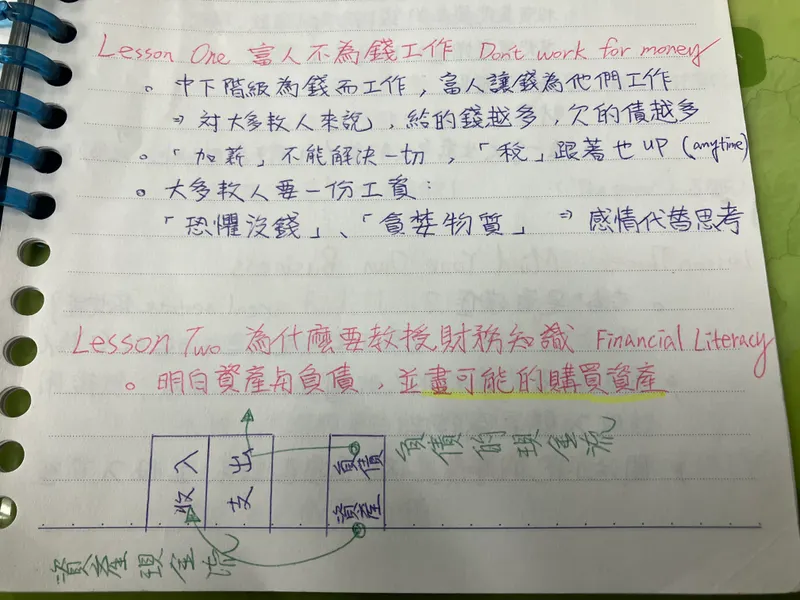 Lesson One 富人不為錢工作 Don't work for money
。中下階級為錢而工作,富人讓錢為他們工作
⇒ 対大多数人來說,給的錢越多,欠的債越多
。「加薪」不能解決一切,「稅」跟著也 UP (anytime)
。大多数人要一份工資:
「恐懼沒錢」、「貪婪物質」 ⇒ 感情代替思考
Lesson Two 為什麼要教授財務知識 Financial Literacy
。明白資產與負債,並盡可能的購買資產
收入
支出
負債
資產
負債的現金流
資產現金流